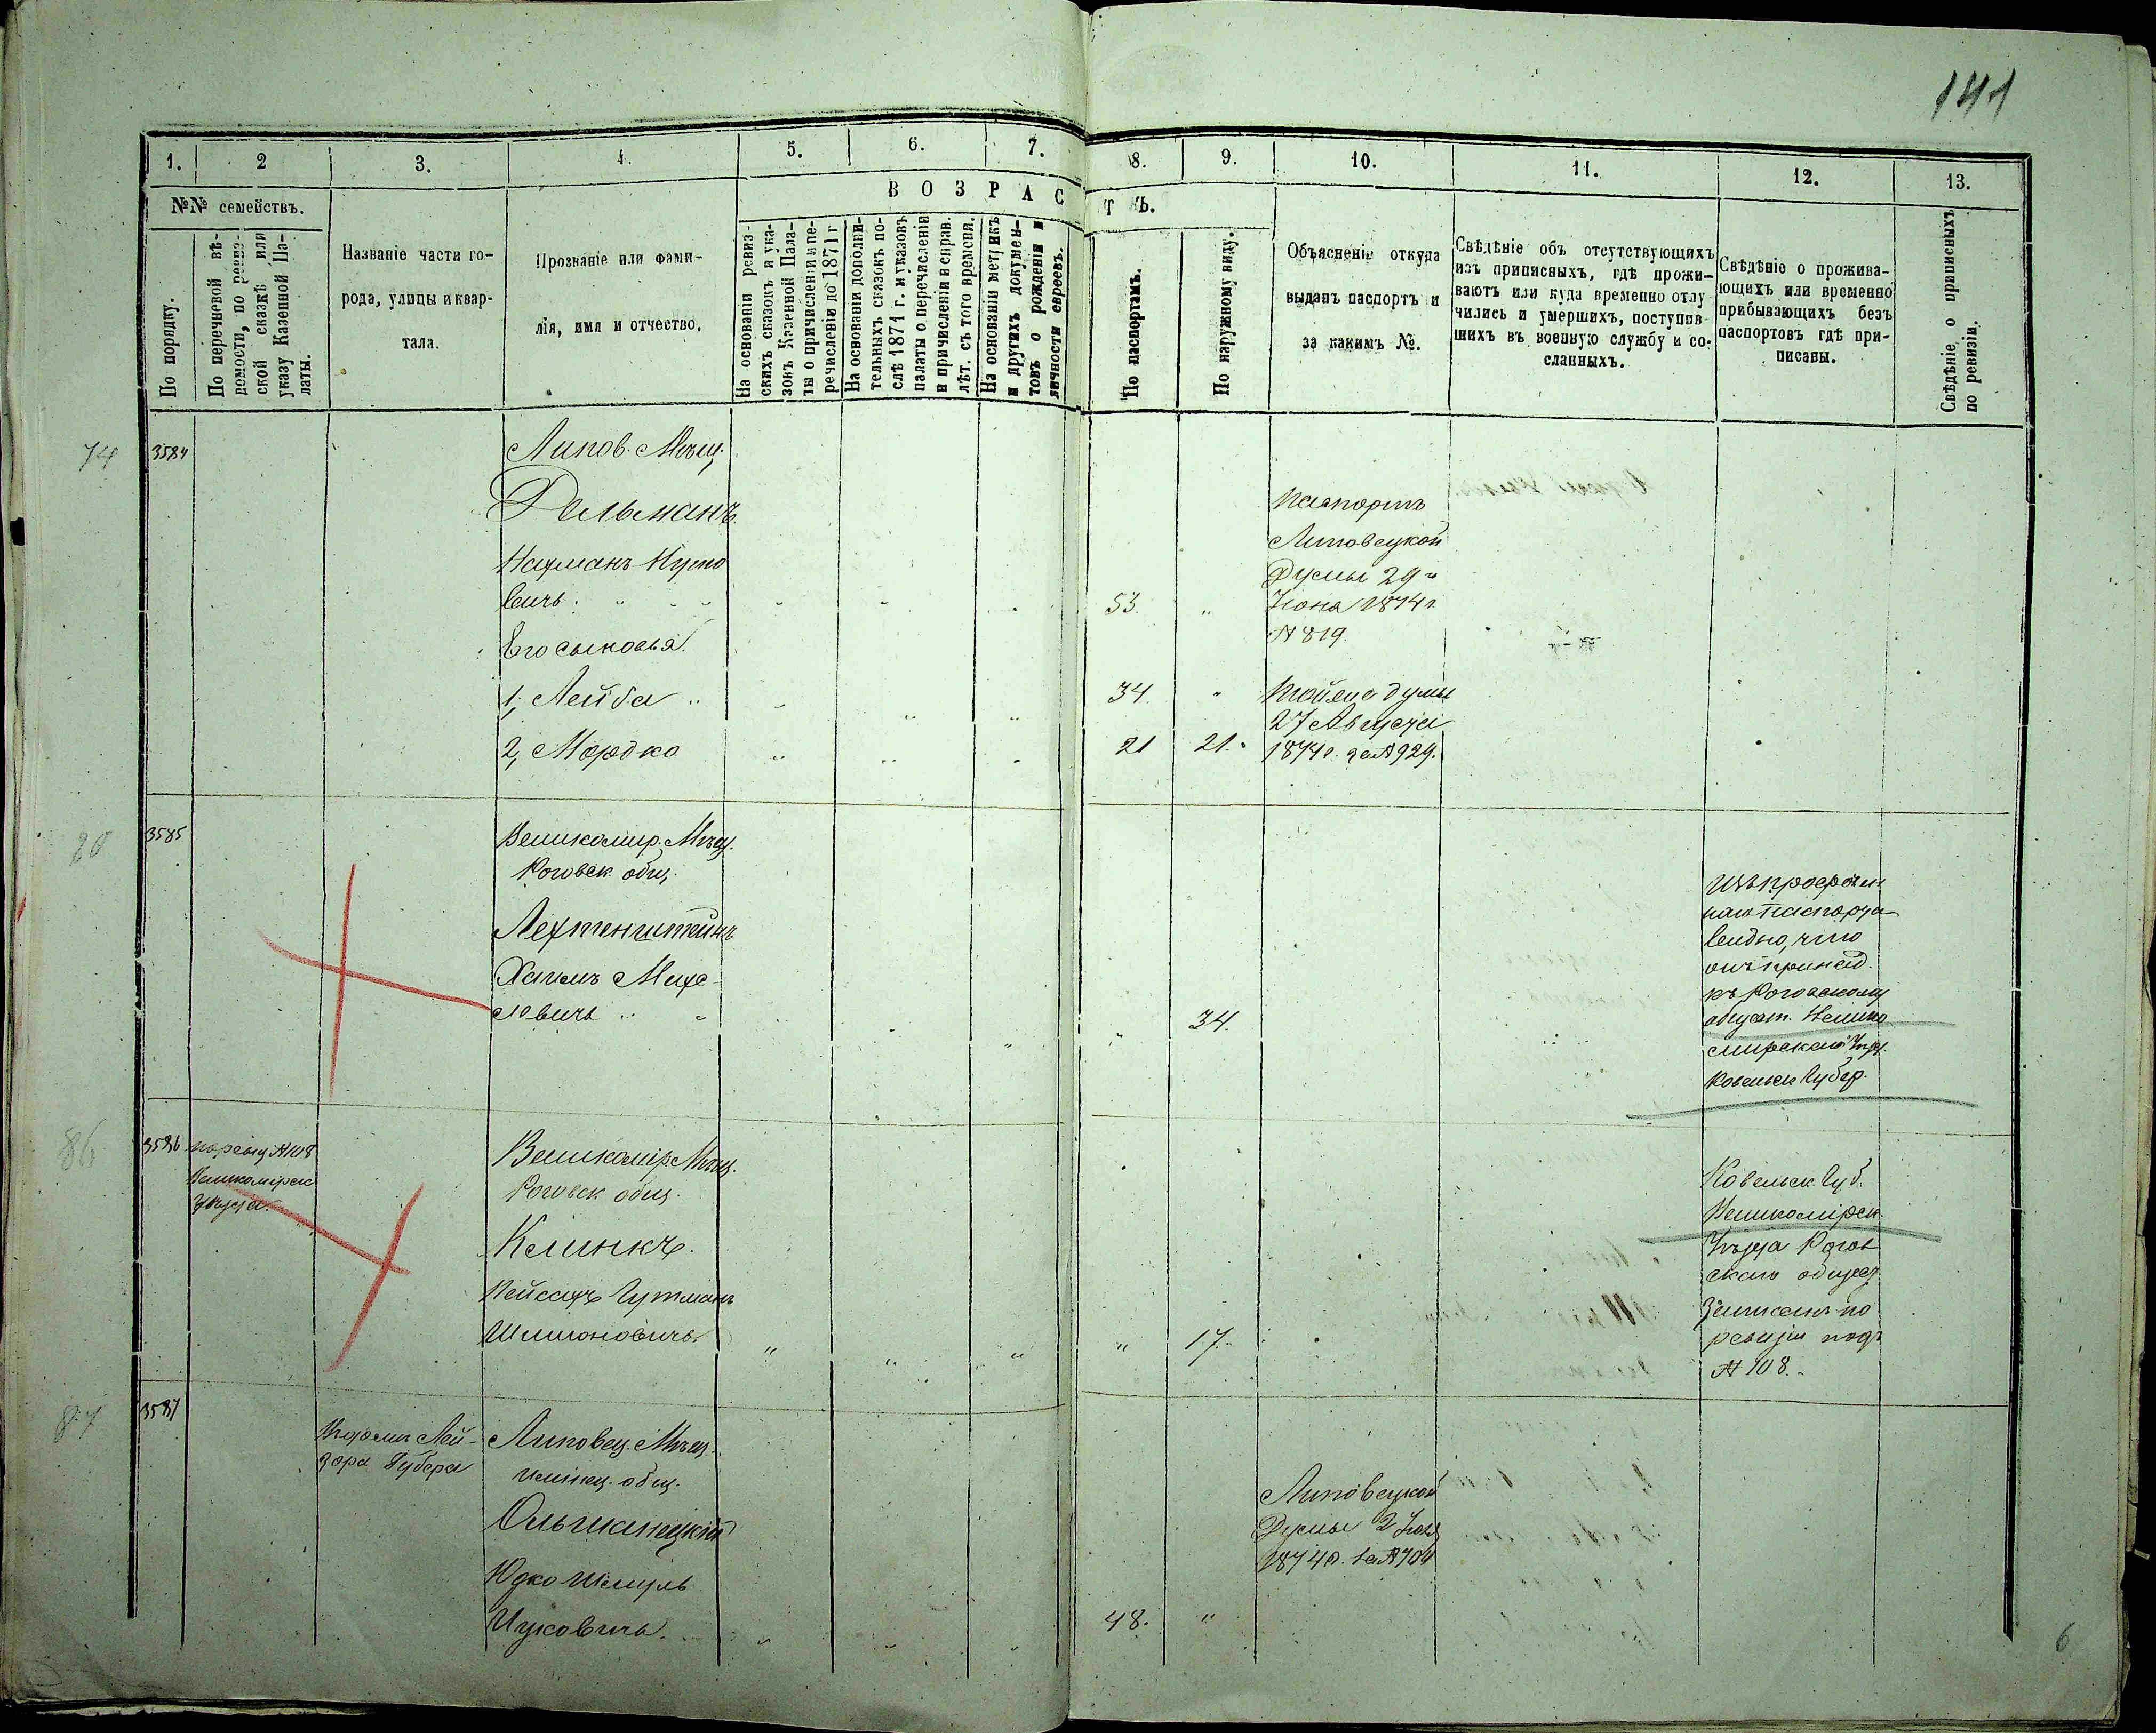 141
1. 2 3. 4. 5. 6. 7. 8. 9. 10. 11. 12. 13.
№№ семействъ.
По порядку.
По перечневой вѣ-
домости, по ревиз-
ской сказкѣ или
указу Казенной Па-
латы.
Названіе части го-
рода, улицы и квар-
тала.
Прозваніе или фами-
лія, имя и отчество.
ВОЗРАСТЪ.
На основаніи ревиз-
скихъ сказокъ и ука-
зовъ Казенной Пала-
ты о причисленіи и пе-
речисленіи до 1871 г
На основаніи дополни-
тельныхъ сказокъ по-
слѣ 1871 г. и указовъ
палаты о перечисленіи
и причисленіи и справ.
лѣт. съ того времени.
На основаніи метрикъ
и другихъ докумен-
товъ о рожденіи и
личности евреевъ.
По паспортамъ.
По наружному виду.
Объясненіе откуда
выданъ паспортъ и
за какимъ №.
Свѣдѣніе объ отсутствующихъ
изъ приписныхъ, гдѣ прожи-
ваютъ или куда временно отлу
чились и умершихъ, поступив-
шихъ въ военную службу и со-
сланныхъ.
Свѣдѣніе о прожива-
ющихъ или временно
прибывающихъ безъ
паспортовъ гдѣ при-
писаны.
Свѣдѣніе о приписныхъ
по ревизіи.
74 3584
Липов. Мѣщ.
Фельманъ
Нахманъ
вичъ. 53 "
Его сыновья
1, Лейба " 34 "
2, Мордко 21 21.
паспортъ
Липовецкой
Думы 29
Іюня 1874 г.
№ 819.
Тойже думы
27 Августа
1874 г. за № 929.
80 3585
Вилкомир. Мѣщ.
Роговск. общ.
Лехтенштейнъ
Хаимъ Михе-
левичъ " 34.
Изъ просрочен
наго паспорта
видно, что
онъ принад.
къ Роговскому
общест. Велико
мирскаго Уѣз.
Ковенск. Губер.
86 3586
по ревиз № 108
Вилкомирск
уѣзда.
Великомир. Мѣщ.
Роговск. общ.
Клинкъ.
Пейсахъ Гутманъ
Шимоновичъ. " " " " 17.
Ковенск. Губ.
Великомирск
Уѣзда Рогов
скаго общест
Записанъ по
ревизіи подъ
№ 108.
87 3587
въ домѣ Лей-
зора Губера
Липовец. Мѣщ.
Илинец. общ.
Ольшанецкій
Юдко Шмуль
Ицковичъ. 48. "
Липовецкой
Думы 2 Іюня
1874 г. за № 704
6